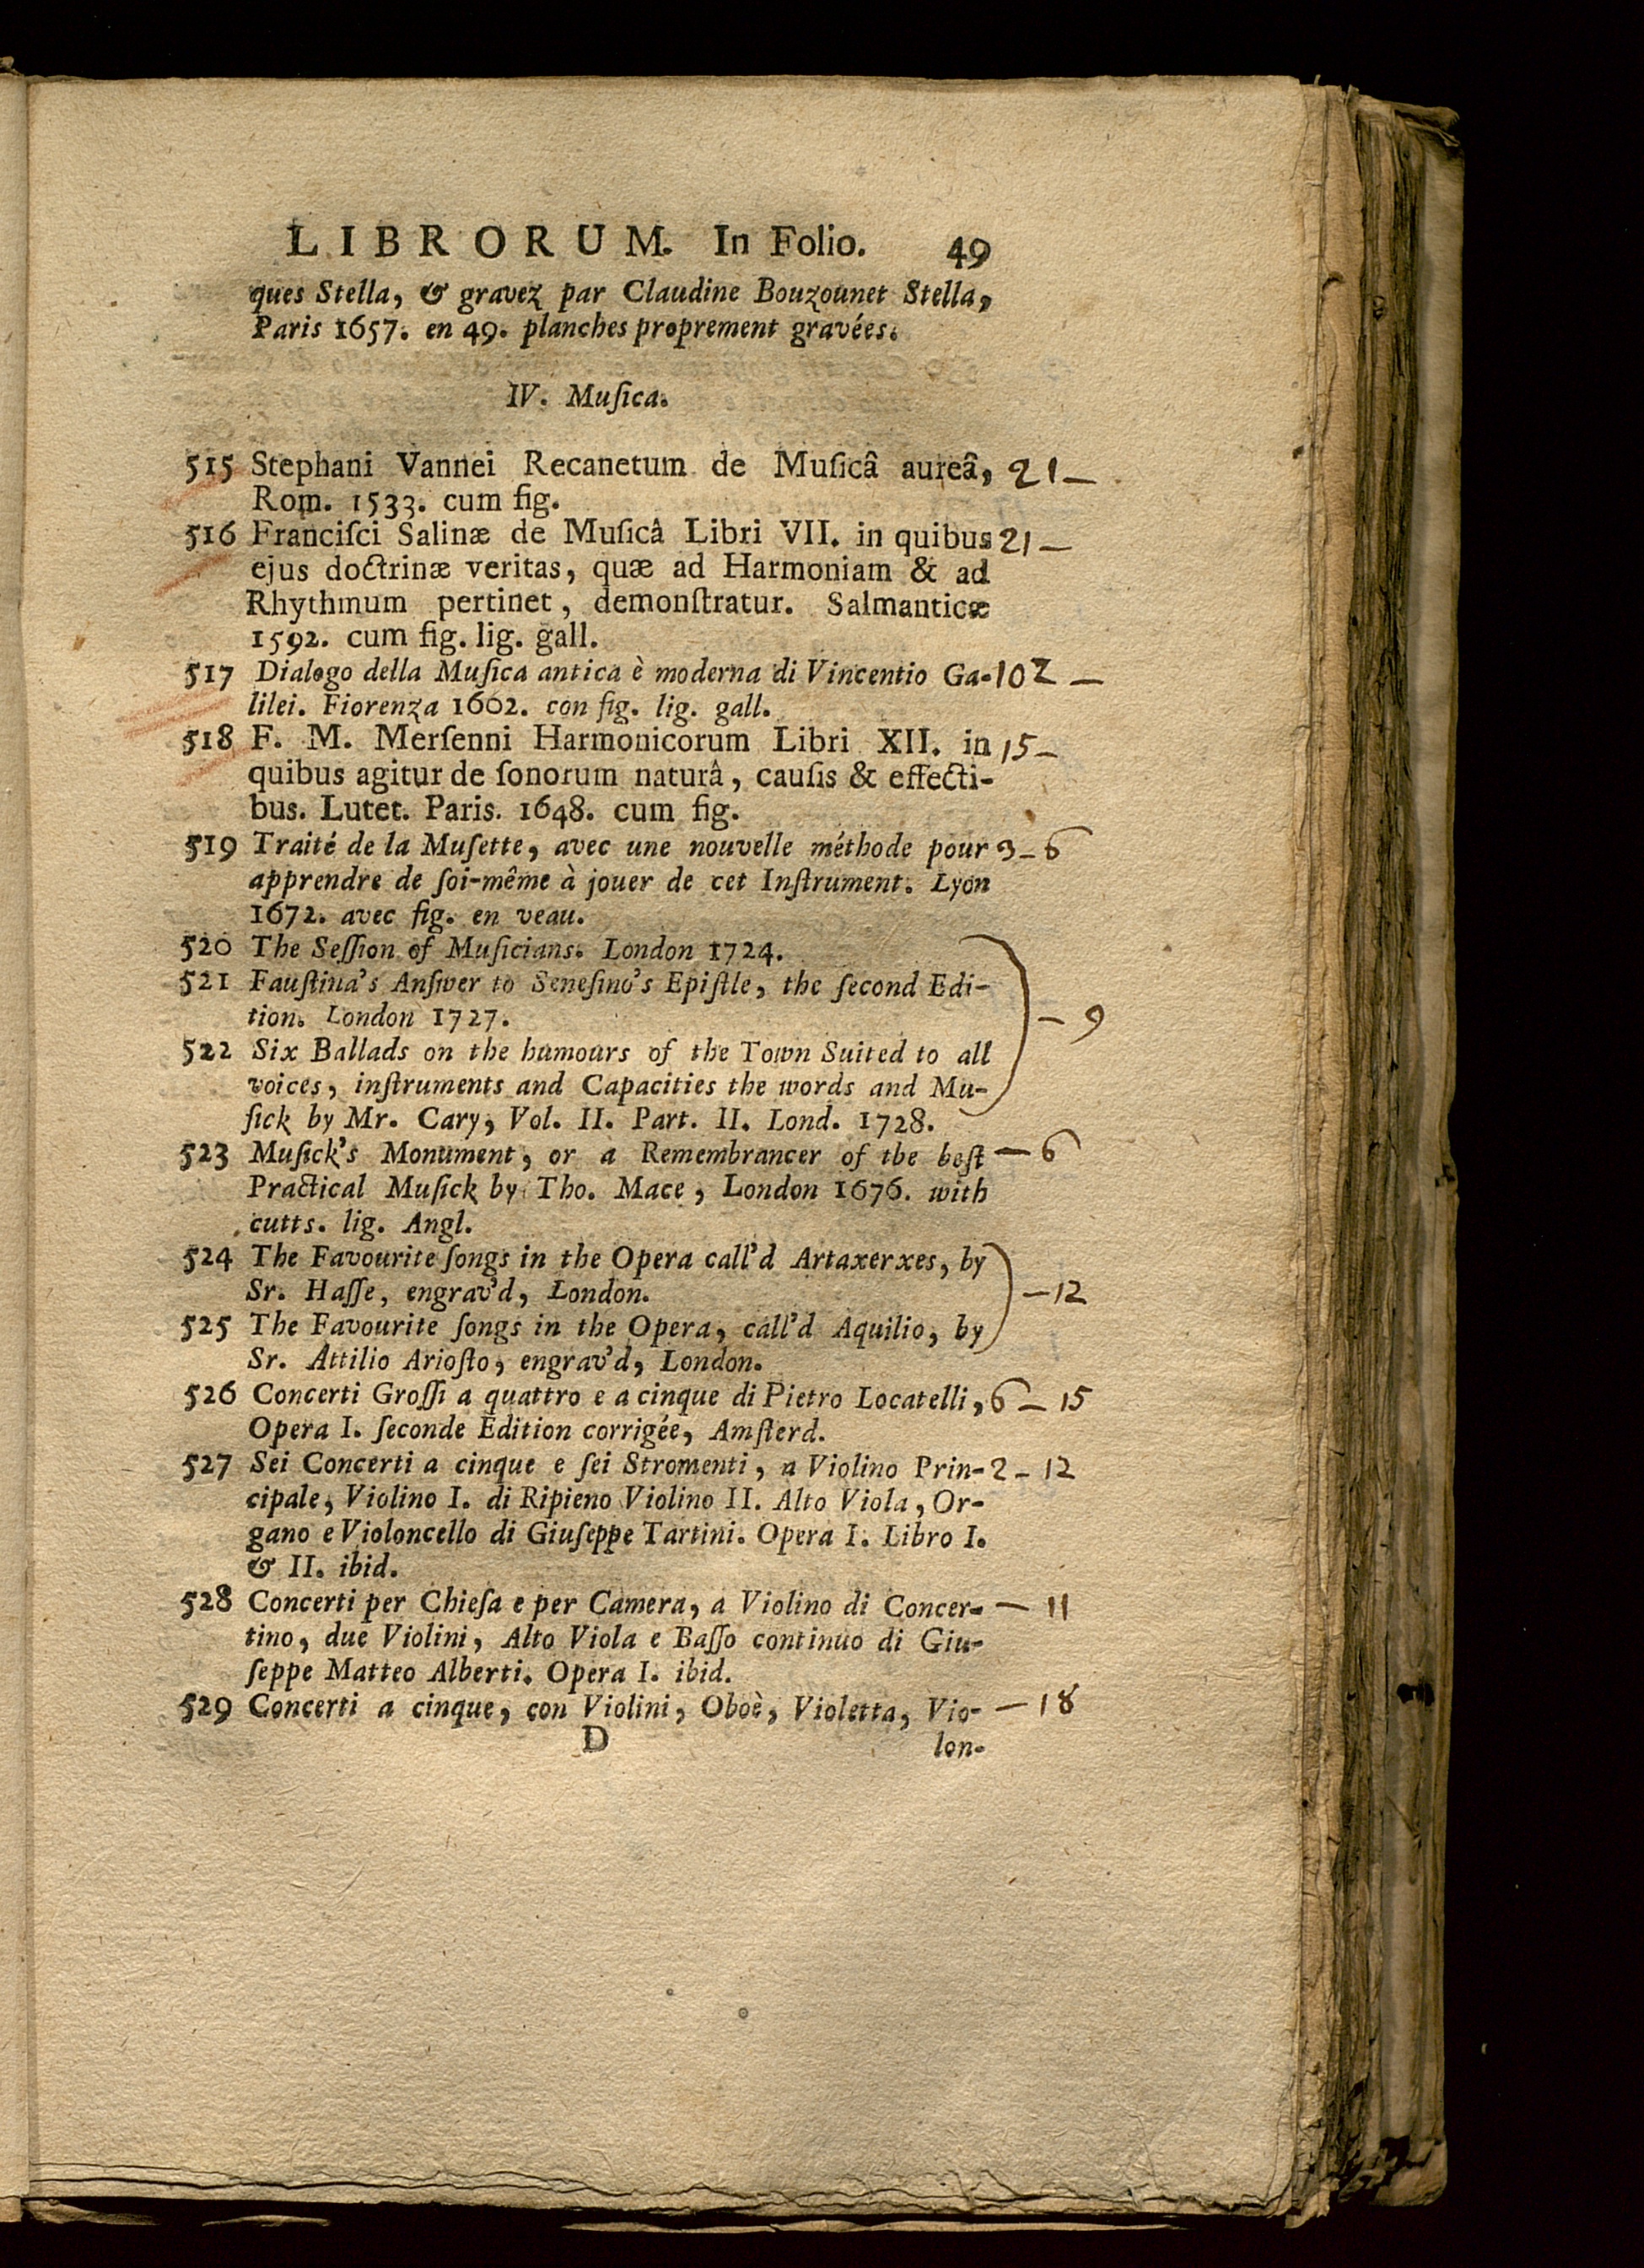 LIBRORUM. In Folio. 49
ques Stella, & gravez par Claudine Bouzounet Stella,
Paris 1657. en 49. planches proprement gravées.
IV. Muſica.
515 Stephani Vannei Recanetum de Muſicâ aureâ, 21 —
Rom. 1533. cum fig.
516 Franciſci Salinæ de Muſicâ Libri VII. in quibus 21 —
ejus doctrinæ veritas, quæ ad Harmoniam & ad
Rhythmum pertinet, demonſtratur. Salmanticæ
1592. cum fig. lig. gall.
517 Dialogo della Muſica antica è moderna di Vincentio Ga- 102 —
lilei. Fiorenza 1602. con fig. lig. gall.
518 F. M. Merſenni Harmonicorum Libri XII. in 15 —
quibus agitur de ſonorum naturâ, cauſis & effecti-
bus. Lutet. Paris. 1648. cum fig.
519 Traité de la Muſette, avec une nouvelle méthode pour 3 — 6
apprendre de ſoi-même à jouer de cet Inſtrument. Lyon
1672. avec fig. en veau.
520 The Seſſion of Muſicians. London 1724.
521 Fauſtina's Anſwer to Seneſino's Epiſtle, the ſecond Edi-
tion. London 1727. — 9
522 Six Ballads on the humours of the Town Suited to all
voices, inſtruments and Capacities the words and Mu-
ſick by Mr. Cary, Vol. II. Part. II. Lond. 1728.
523 Muſick's Monument, or a Remembrancer of tbe beſt — 6
Practical Muſick by Tho. Mace, London 1676. with
cutts. lig. Angl.
524 The Favourite ſongs in the Opera call'd Artaxerxes, by
Sr. Haſſe, engrav'd, London. — 12
525 The Favourite ſongs in the Opera, call'd Aquilio, by
Sr. Attilio Arioſto, engrav'd, London.
526 Concerti Groſſi a quattro e a cinque di Pietro Locatelli, 6 — 15
Opera I. ſeconde Edition corrigée, Amſterd.
527 Sei Concerti a cinque e ſei Stromenti, a Violino Prin- 2 — 12
cipale, Violino I. di Ripieno Violino II. Alto Viola, Or-
gano e Violoncello di Giuſeppe Tartini. Opera I. Libro I.
& II. ibid.
528 Concerti per Chieſa e per Camera, a Violino di Concer- — 11
tino, due Violini, Alto Viola e Baſſo continuo di Giu-
ſeppe Matteo Alberti. Opera I. ibid.
529 Concerti a cinque, con Violini, Oboè, Violetta, Vio- — 18
D lon-